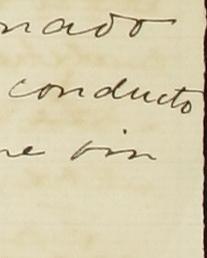 nado
conducto
ne sin